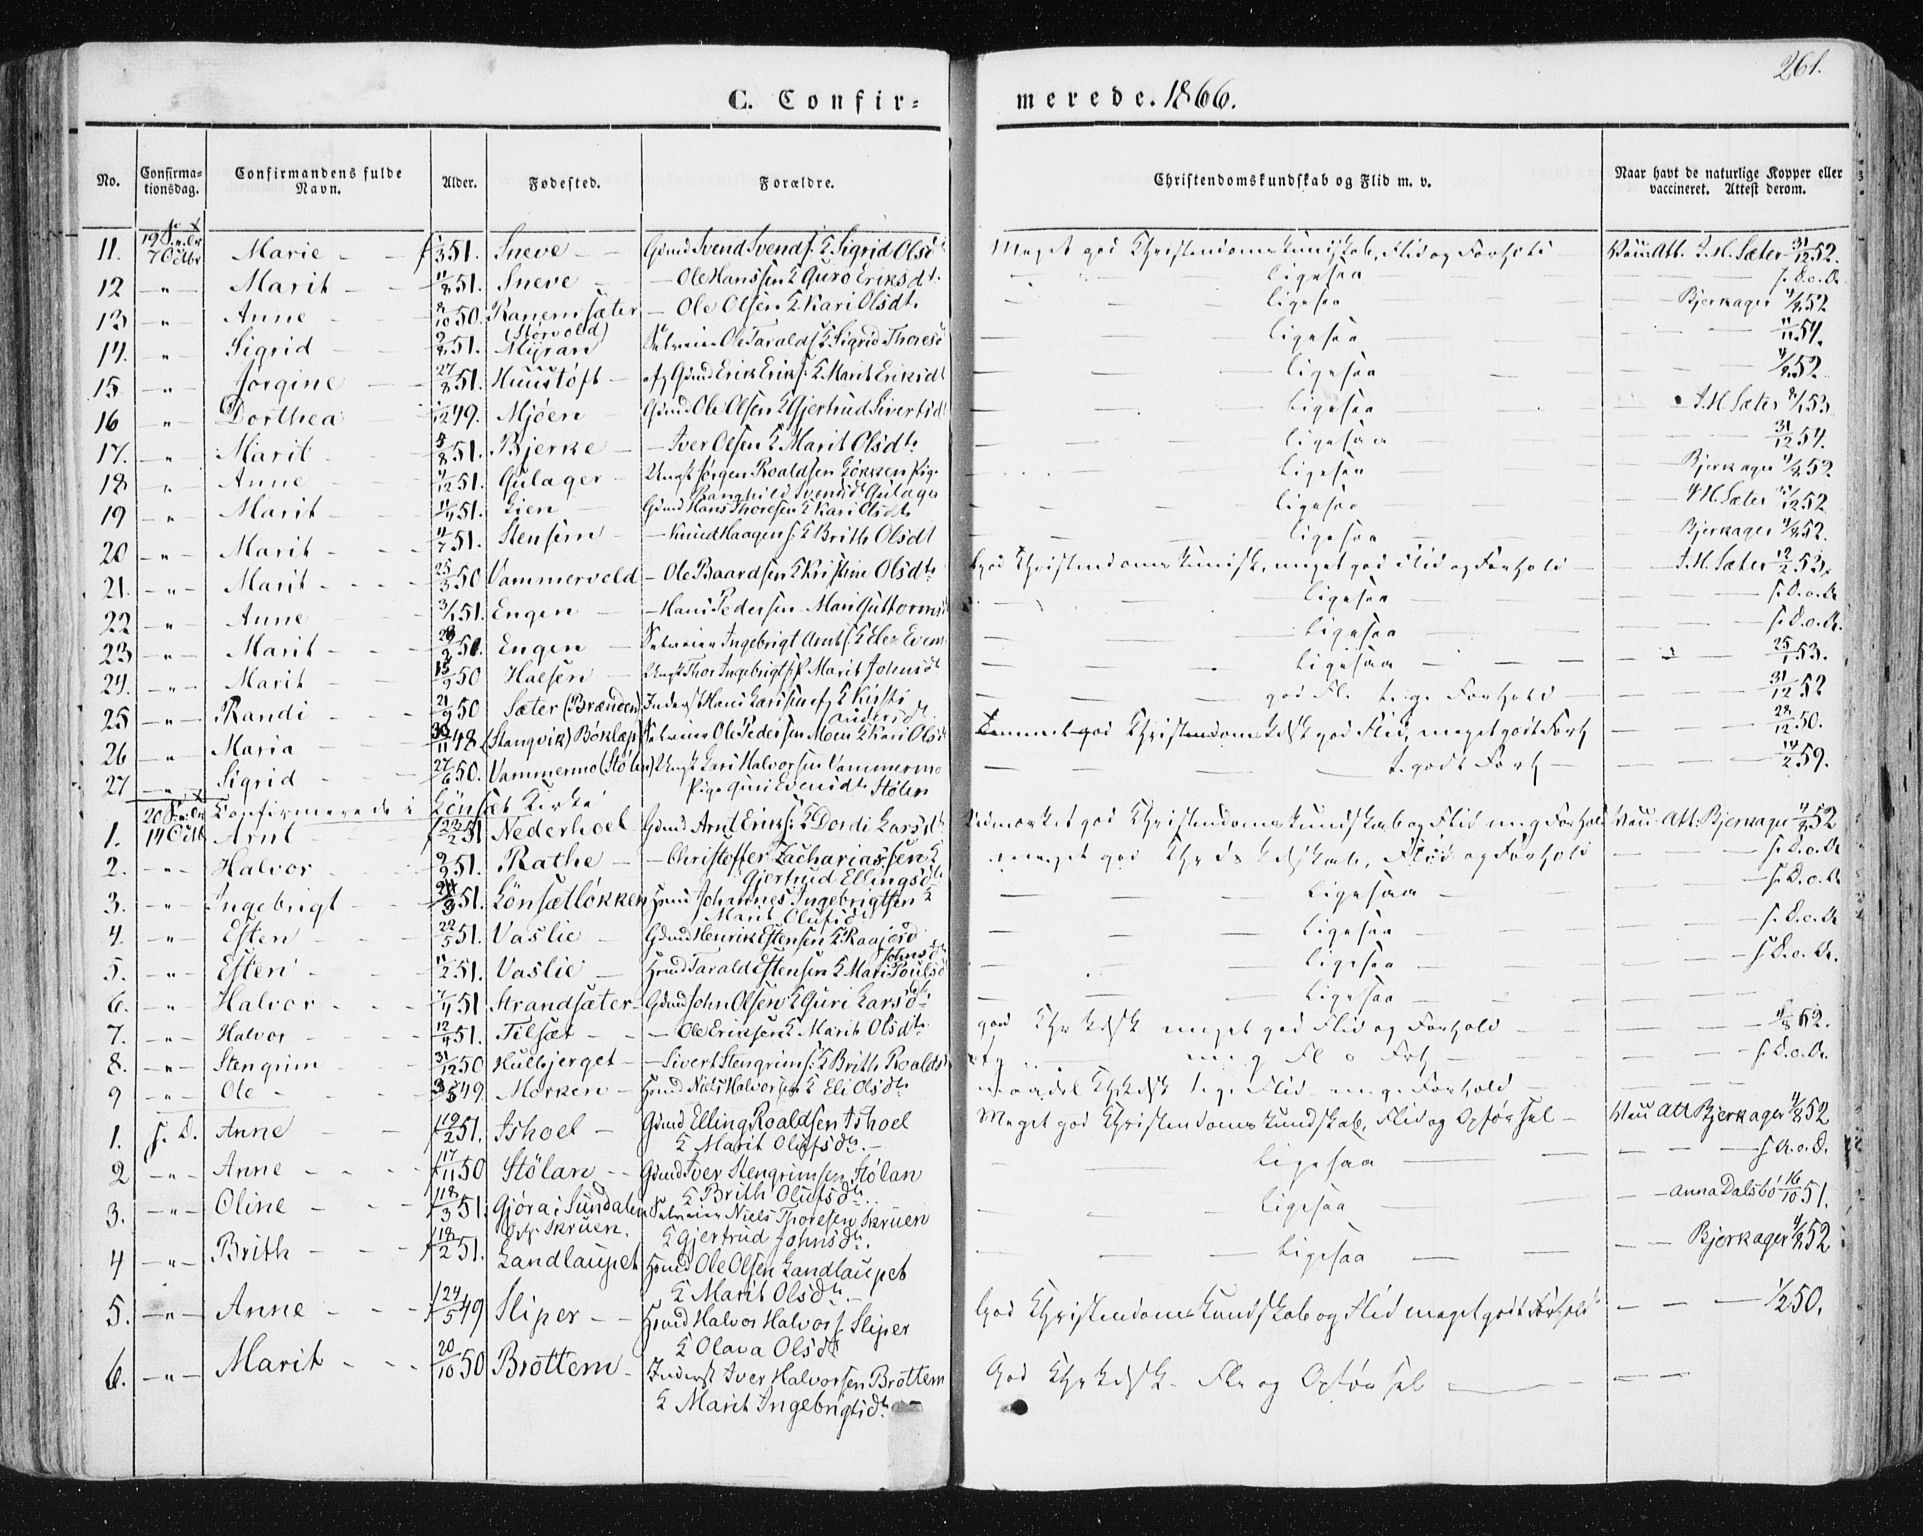 261.
C. Confirmerede. 1866.
No. Confirmationsdag. Confirmandens fulde Navn. Alder. Fødested. Forældre. Christendomskundskab og Flid m. v. Naar havt de naturlige Kopper eller vaccineret. Attest derom.
11. 7 Octbr Marie f 51. Sneve Gmd Svend Svends. & Sigrid Olsd Meget god Christendomskundskab, Flid og Forhold Vacc. Att. J. H. Sæter 31/12 52.
12 " Marit 11/8 51. Sneve Ole Hanssen & Guro Eriksdt. ligesaa s. D. o. A.
13 " Anne 8/10 50. Ranemsæter Ole Olsen & Kari Olsdt. ligesaa Bjerkager 4/8 52
14. " Sigrid 51. (Storvold) Myran Selveier Ole Taralds. & Sigrid Thoresd ligesaa 54.
15 " Jørgine 27/8 51. Huustoft Gmd Erik Eriks. & Marit Eriksdt ligesaa 52.
16 " Dorthea 49. Mjøen Gmd Ole Olsen & Gjertrud Sivertsd ligesaa J. H. Sæter 53
17. " Marit 51. Bjerke Iver Olsen & Marit Olsdt. ligesaa 31/12 54.
18 " Anne 51. Gulager Ungk Jørgen Roaldsen Løkken Pige Ranghild Svendsd. Gulager ligesaa Bjerkager 4/8 52
19 " Marit 51. Lien Gmd Hans Thoresen & Kari Olsdt. ligesaa J. H. Sæter 31/12 52
20 " Marit 51. Stensem Knud Haagens. & Brith Olsdt ligesaa Bjerkager 4/8 52.
21. " Marit 25/3 50 Vammervold Ole Baardsen & Kristine Olsdt. God Christendomskundsk., meget god Flid og Forhold J. H. Sæter 12/2 53.
22 " Anne 3/1 51. Engen Hans Pedersen Mari Guttormsd ligesaa s. D. o. A.
23 " Marit 50. Engen Selveier Ingebrigt Arnts. & Else Evens ligesaa s. D. o. A.
24. " Marit 15/9 50 Halsen Ungk Thor Ingebrigts. & Marit Johnsdt ligesaa 25/1 53.
25 " Randi 21/9 50 Sæter (Brænden) Inderst Hans Larssen & Kirsti Andersdt. god Fl. t. g. Forhold 31/12 52
26 " Maria 30/11 48 (Stangvik) Bøklep Selveier Ole Pedersen Moen & Kari Olsdt Temmet god Christendomskdsk god Flid, meget godt Forh 28/12 50.
27 " Sigrid 27/6 50. Vammermo (Stølen) Ungk Lars Halvorsen Vammermo Pige Guri Evensdt. Stølen t. godt Forh 14/2 59.
Confirmerede i Lønset Kirke
1. 14 Octb Arnt 51 Nederhoel Gmd Arnt Eriks. & Dordi Larsdt. Udmærket god Christendomskundskab og Flid meg Forhold Vacc. Att. Bjerkager 4/8 52
2. " Halvor 51. Rathe Christoffer Zachariassen & Gjertrud Ellingsdt. meget god Chrds Kdskab, Flid og Forhold s. D. o. A
3. " Ingebrigt 51. Lønsætløkken Hmd Johannes Ingebrigtsen & Marit Olufsdt. Ligesaa s. D. o. A
4. " Esten 22/5 51. Vaslie Gmd Henrik Estensen & Raajerd Johnsd. Ligesaa s. D. o. A
5. " Esten 11/2 51. Vaslie Hmd Tarald Estensen & Mari Poulsd Ligesaa s. D. o. A.
6. " Halvor 51 Strandsæter Gmd John Olsen & Guri Larsdt. Ligesaa
7. " Halvor 12/4 51. Tilset Ole Eriksen & Marit Olsdt. god Chr Kdsk meget god Flid og Forhold 52.
8. " Stengrim 31/12 50 Hulbjerget Sivert Stengrims. & Brith Roaldsd m. g Fl o Forh s. D. o. A.
9 " Ole 49 Morken Hmd Niels Halvorsen & Eli Olsdt. maadel Chr Kdsk t. g. Flid meg. Forhold
1. s. D. Anne 19/2 51. Ishoel Gmd Elling Roaldsen Ishoel & Marit Olufsdt. Meget god Christendomskundskab, Flid og Opførsel Vacc Att Bjerkager 4/8 52
2 " Anne 17/11 50 Stølan Gmd Iver Stengrimsen Stølan & Brith Olufsdt. ligesaa s. A. o. D.
3. " Oline 18/3 51. Gjøra i Sundalen Opf Skruen. Selveier Niels Thoresen Skruen & Gjertrud Johnsdt. ligesaa Anna Dalsbø 16/10 51.
4 " Brith 18/2 51. Landlaupet Hmd Ole Olsen Landlaupet & Marit Olsdt. Ligesaa Bjerkager 4/8 52
5. " Anne 24/5 49 Sliper Hmd Halvor Halvors Sliper & Olava Olsdt God Christendomskundskab og Flid meget godt Forhold 1/2 50.
6. " Marit 20/10 50 Brøttem Inderst Iver Halvorsen Brøttem & Marit Ingebrigtsdt. God Chr Kdsk Fl og Opførsel